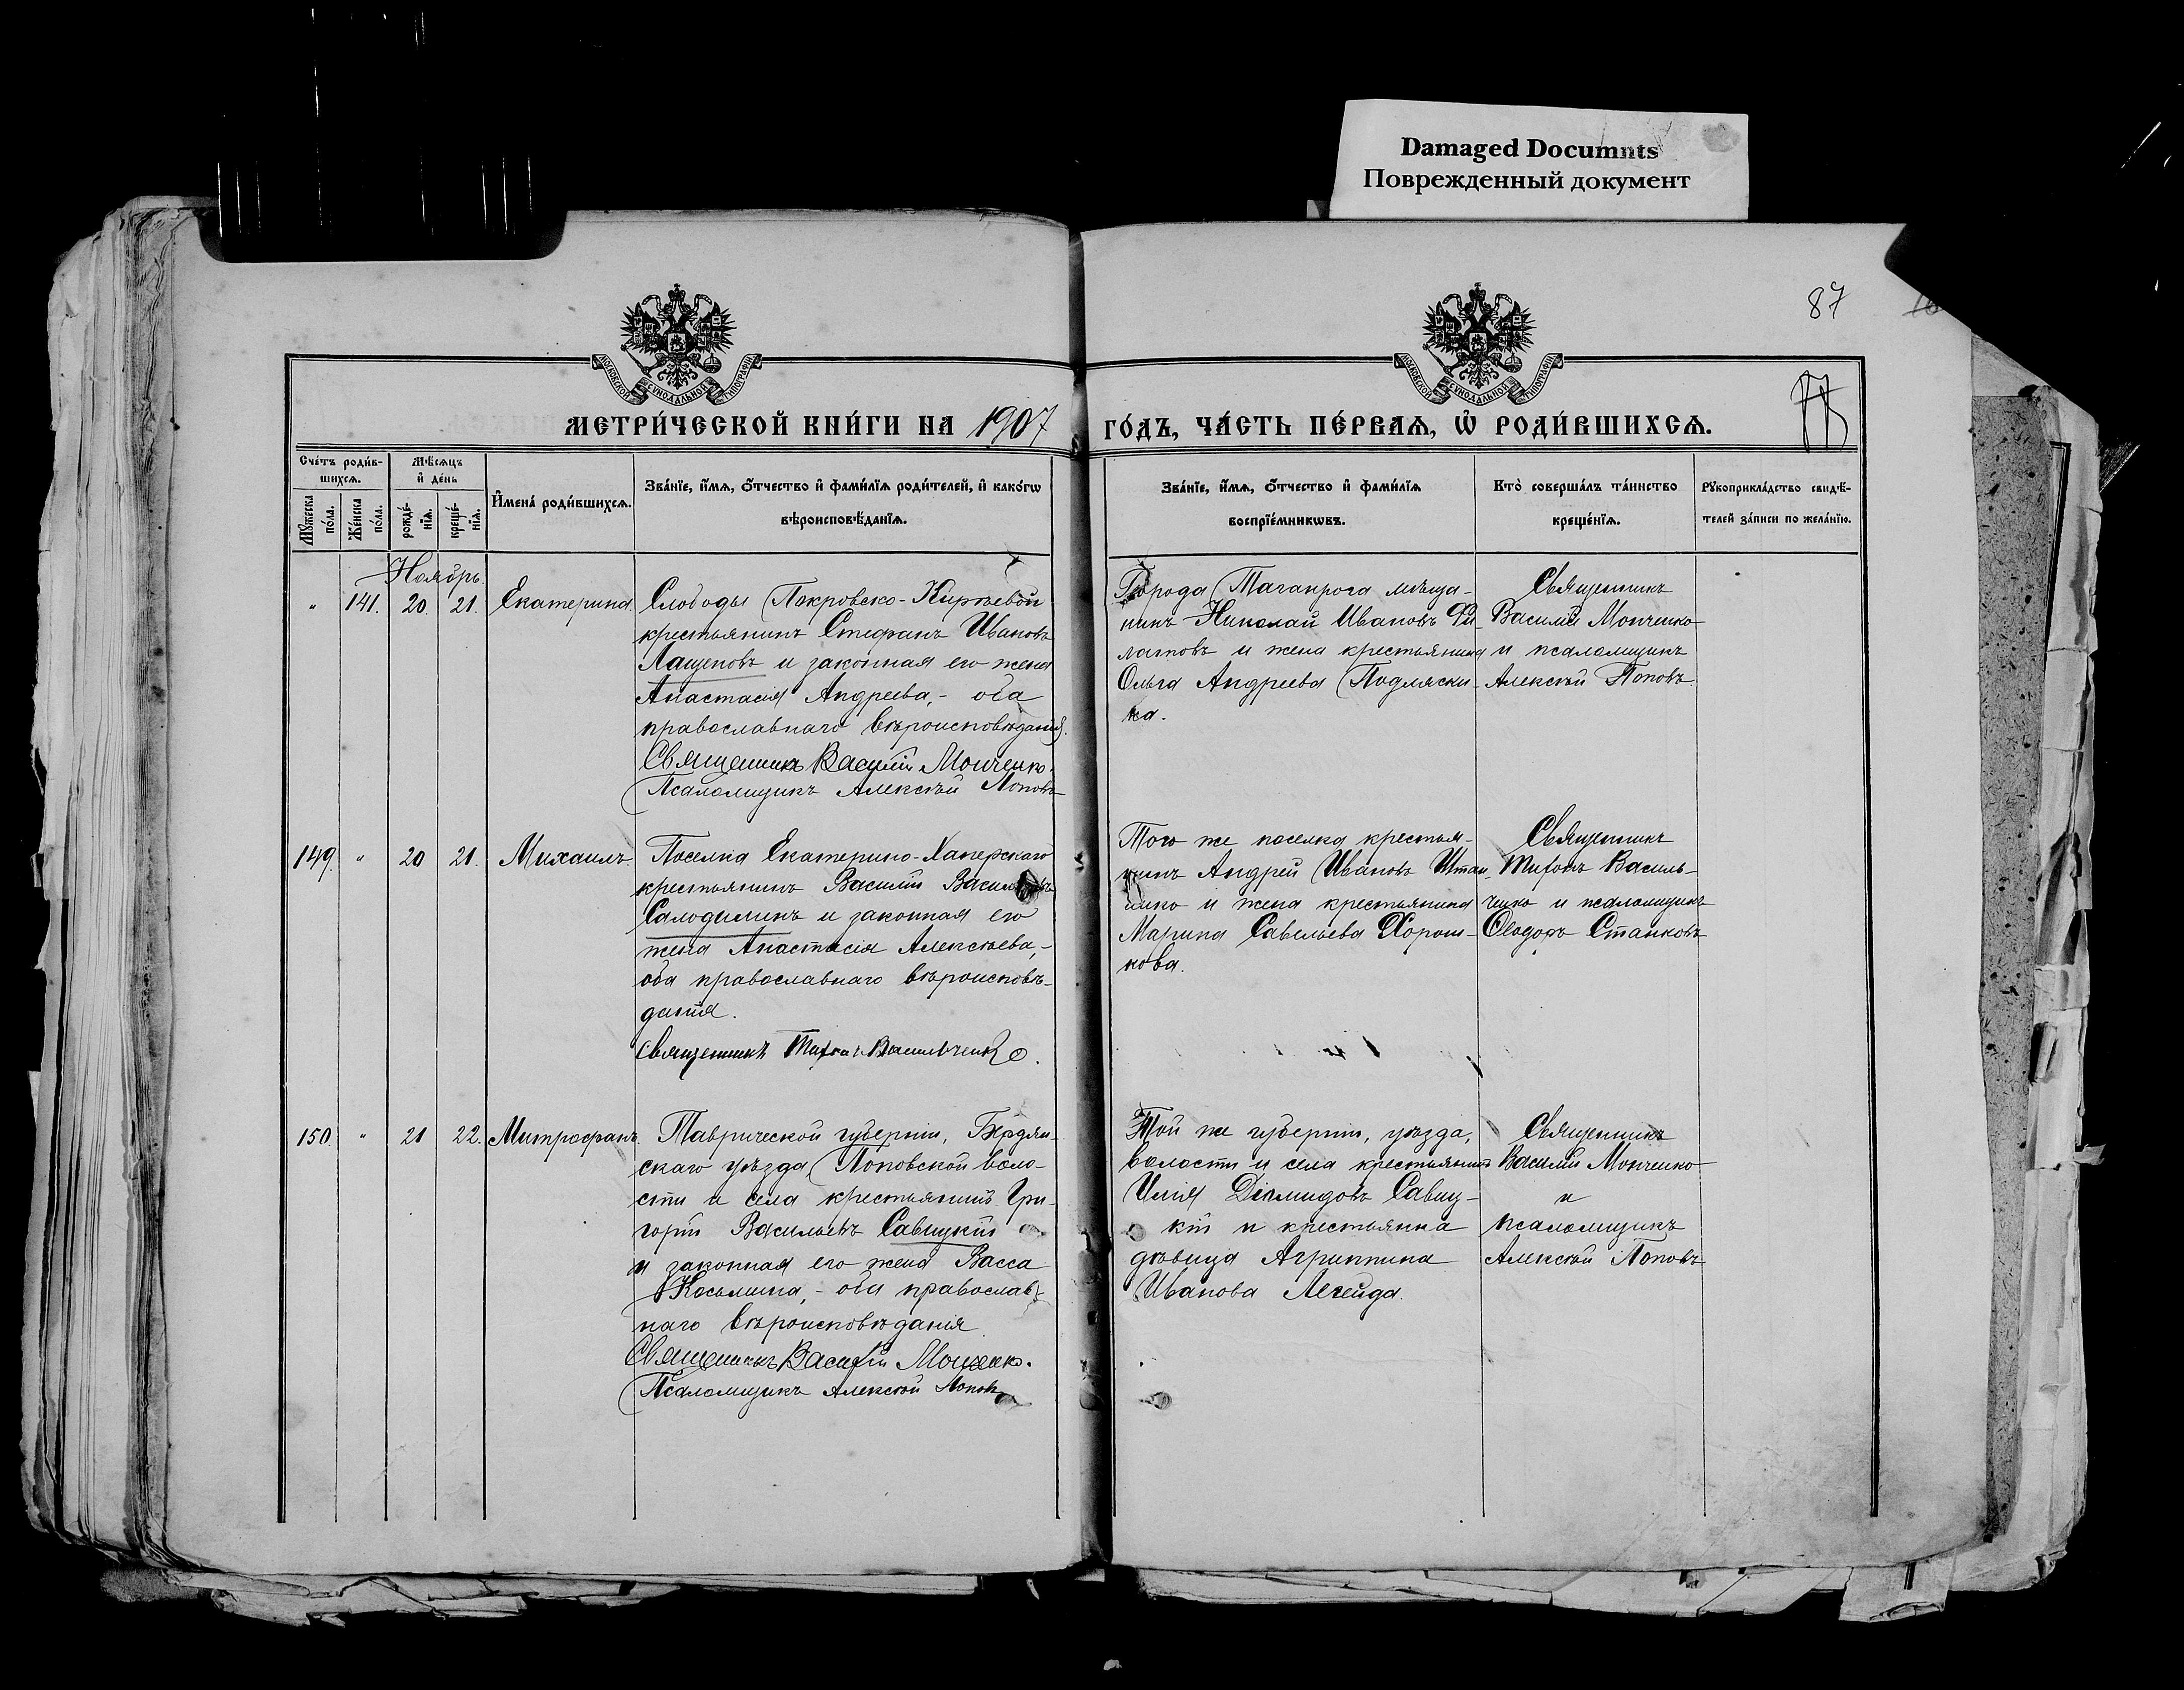 Damaged Documnts
Поврежденный документ
87
МОСКОВСКОЙ СѴНОДАЛЬНОЙ ТИПОГРАФІИ
МОСКОВСКОЙ СѴНОДАЛЬНОЙ ТИПОГРАФІИ
МЕТРИ́ЧЕСКОЙ КНИ́ГИ НА 1907
ГО́ДЪ, ЧА́СТЬ ПЕ́РВАѦ, Ѡ҆ РОДИ́ВШИХСѦ.
Сче́тъ роди́в-
шихсѧ.
Мѣ́сѧцъ
и҆ де́нь
Мꙋ́жеска
по́ла.
Же́нска
по́ла.
рожде́-
нїѧ.
креще́-
нїѧ.
И҆мена̀ роди́вшихсѧ.
Зва́нїе, и҆́мѧ, ѻ҆́тчество и҆ фами́лїѧ роди́телей, и҆ како́гѡ
вѣроисповѣ́данїѧ.
Зва́нїе, и҆́мѧ, ѻ҆́тчество и҆ фами́лїѧ
воспрїе́мникѡвъ.
Кто̀ соверша́лъ та́инство
креще́нїѧ.
Рꙋкоприкла́дство свидѣ́-
телей за́писи по жела́нїю.
Ноябрь.
" 141. 20. 21. Екатерина
Слободы Покровско-Киреевой
крестьянинъ Стефанъ Ивановъ
Лащеновъ и законная его жена
Анастасія Андреева, - оба
православнаго вѣроисповѣданія.
Священникъ Василій Монченко.
Псаломщикъ Алексѣй Поповъ
Города Таганрога мѣща-
нинъ Николай Ивановъ Фи-
латовъ и жена крестьянина
Ольга Андреева Подляски-
на.
Священникъ
Василій Монченко
и псаломщикъ
Алексѣй Поповъ.
149. " 20 21. Михаилъ
Поселка Екатерино-Хаперскаго
крестьянинъ Василій
Салодилинъ и законная его
жена Анастасія Алексѣева, -
оба православнаго вѣроисповѣ-
данія.
Священникъ Тихонъ Васильченко.
Того же поселка крестья-
нинъ Андрей Ивановъ
и жена крестьянина
Марина Савельева Хорош-
кова.
Священникъ
Тихонъ Василь-
ченко и псаломщикъ
Ѳеодоръ Станковъ
150. " 21 22. Митрофанъ.
Таврической губерніи, Бердян-
скаго уѣзда Поповской воло-
сти и села крестьянинъ Гри-
горій Васильевъ Савицкій
и законная его жена Васса
Косьмина, - оба православ-
наго вѣроисповѣданія
Священникъ Василій Монченко.
Псаломщикъ Алексѣй Поповъ
Той же губерніи, уѣзда,
волости и села крестьянинъ
Илія Діомидовъ Савиц-
кій и крестьянка
дѣвица Агриппина
Иванова Легейда.
Священникъ
Василій Монченко
и
псаломщикъ
Алексѣй Поповъ